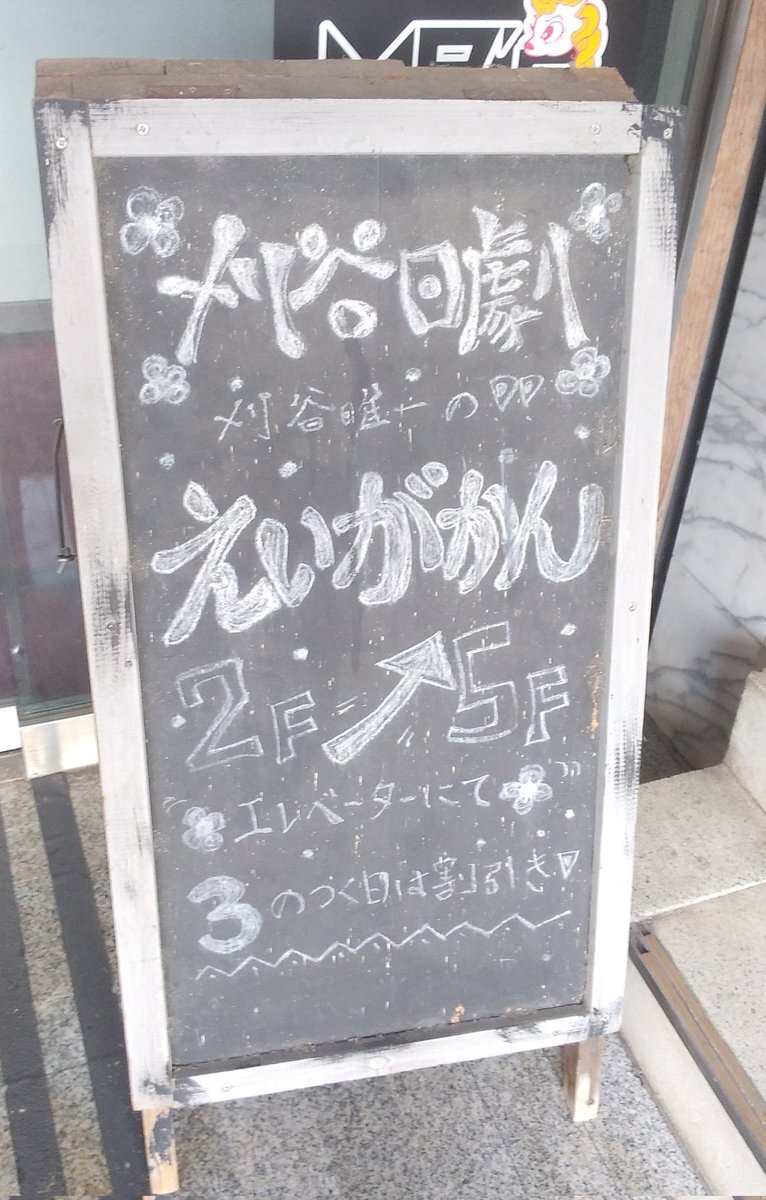 刈谷日劇
刈谷唯一の
えいがかん
2F 5F
エレベーターにて
3のつく日は割引き